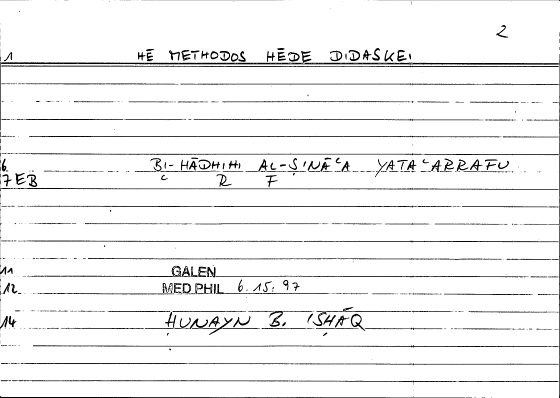 2
1 HĒ METHODOS HĒDE DIDASKEI
6 BI-HĀDHIHI AL-ṢINĀʿA YATAʿARRAFU
7EB ʿ R F
11 GALEN
12 MED PHIL 6.15.97
14 ḤUNAYN B. ISḤĀQ